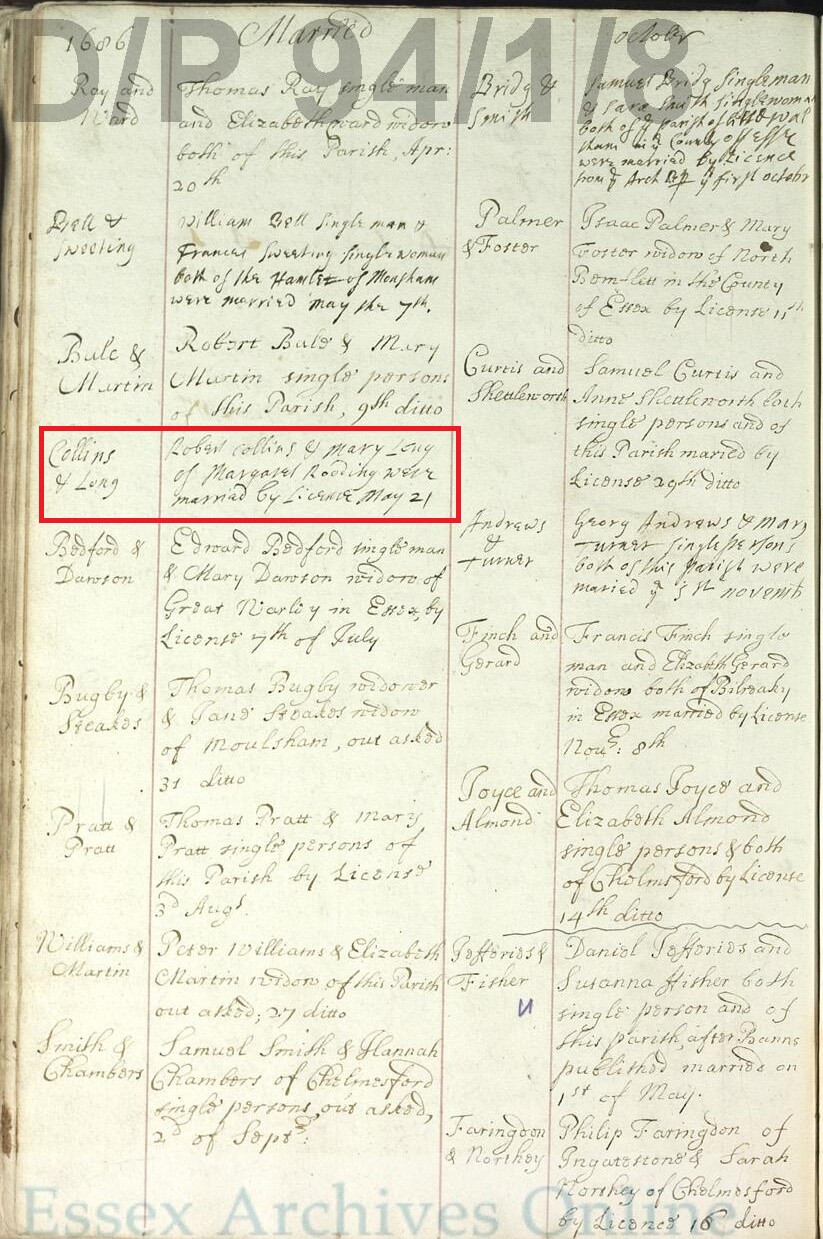 D/P 94/1/8
1686
Married
October
Ray and
Ward
Thomas Ray single man
and Elizabeth ward widow
both of this Parish, Apr:
20th
Bell &
Sweeting
William Bell Single man &
Frances Sweeting single woman
both of the Hamlet of Monsham
were married may the 7th.
Bule &
Martin
Robert Bule & Mary
Martin single persons
of this Parish, 9th ditto
Collins
& Long
Robert Collins & Mary Long
of Margaret Rooding were
married by Licence May 21
Bedford &
Dawson
Edward Bedford single man
& Mary Dawson widow of
Great Warley in Essex, by
License 7th of July
Bugby &
Steakes
Thomas Bugby widower
& Jane Steakes widow
of Moulsham, out asked
31 ditto
Pratt &
Pratt
Thomas Pratt & Mary
Pratt single persons of
this Parish by License
3d Augt.
Williams &
Martin
Peter Williams & Elizabeth
Martin widow of this Parish
out asked; 27 ditto
Smith &
Chambers
Samuel Smith & Hannah
Chambers of Chelmesford
single persons, out asked,
2d of Sept:
Bridg &
Smith
Samuel Bridg Singleman
& Sara Smith Singlewoman
both of ye parish of little wal
tham in ye County of Essex
were married by Licence
from ye Arch ye first octobr
Palmer
& Foster
Isaac Palmer & Mary
Foster widow of North
Bemflett in the County
of Essex by License 11th
ditto
Curtis and
Shettleworth
Samuel Curtis and
Anne Shettleworth both
single persons and of
this Parish maried by
License 29th ditto
Andrews
&
Turner
Georg Andrews & Mary
Turner Single persons
both of this parish were
maried ye 1st novemb
Finch and
Gerard
Francis Finch single
man and Elizabeth Gerard
widow both of Bilreaky
in Essex married by License
Nov: 8th
Joyce and
Almond
Thomas Joyce and
Elizabeth Almond
single persons & both
of Chelmsford by License
14th ditto
Jefferies &
Fisher
Daniel Jefferies and
Susanna ffisher both
single person and of
this parish, after Banns
published married on
1st of May.
Faringdon
& Northey
Philip Faringdon of
Ingatestone & Sarah
Northey of Chelmesford
by Licence 16 ditto
Essex Archives Online